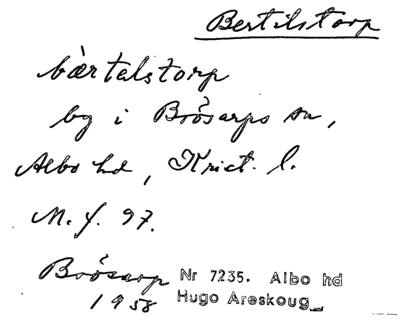 Bertilstorp
bàrtalstorp
by i Brösarps sn,
Albo hd, Krist. l.
M. f. 97.
Brösarp
1958
Nr 7235. Albo hd
Hugo Areskoug